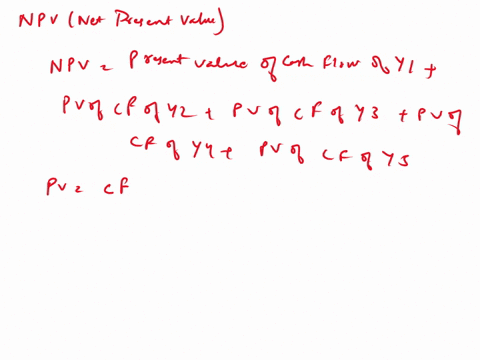 NPV (Net Present Value)
NPV = Present value of Cash flow of Y1 +
PV of CF of Y2 + PV of CF of Y3 + PV of
CF of Y4 + PV of CF of Y5
PV = CF